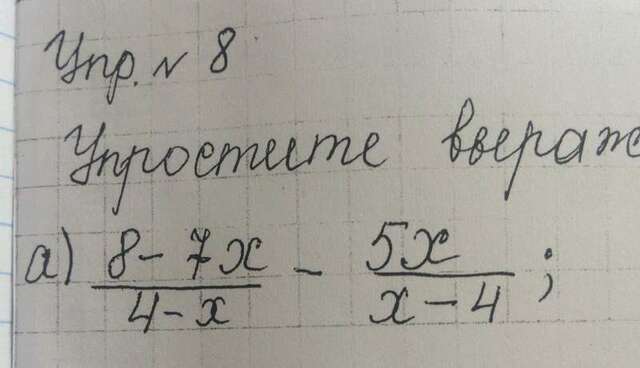 Упр. N 8
Упростите выраж
а) (8-7x)/(4-x) - (5x)/(x-4);